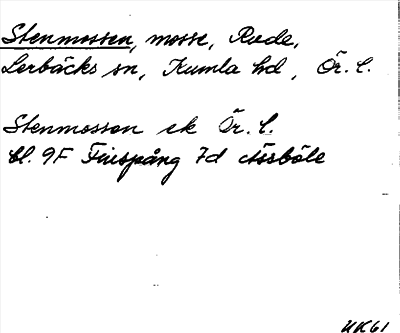 Stenmossen, mosse, Rude,
Lerbäcks sn, Kumla hd, Ör. l.
Stenmossen ek Ör. l.
bl. 9F Finspång 7d Åsbole
UK61